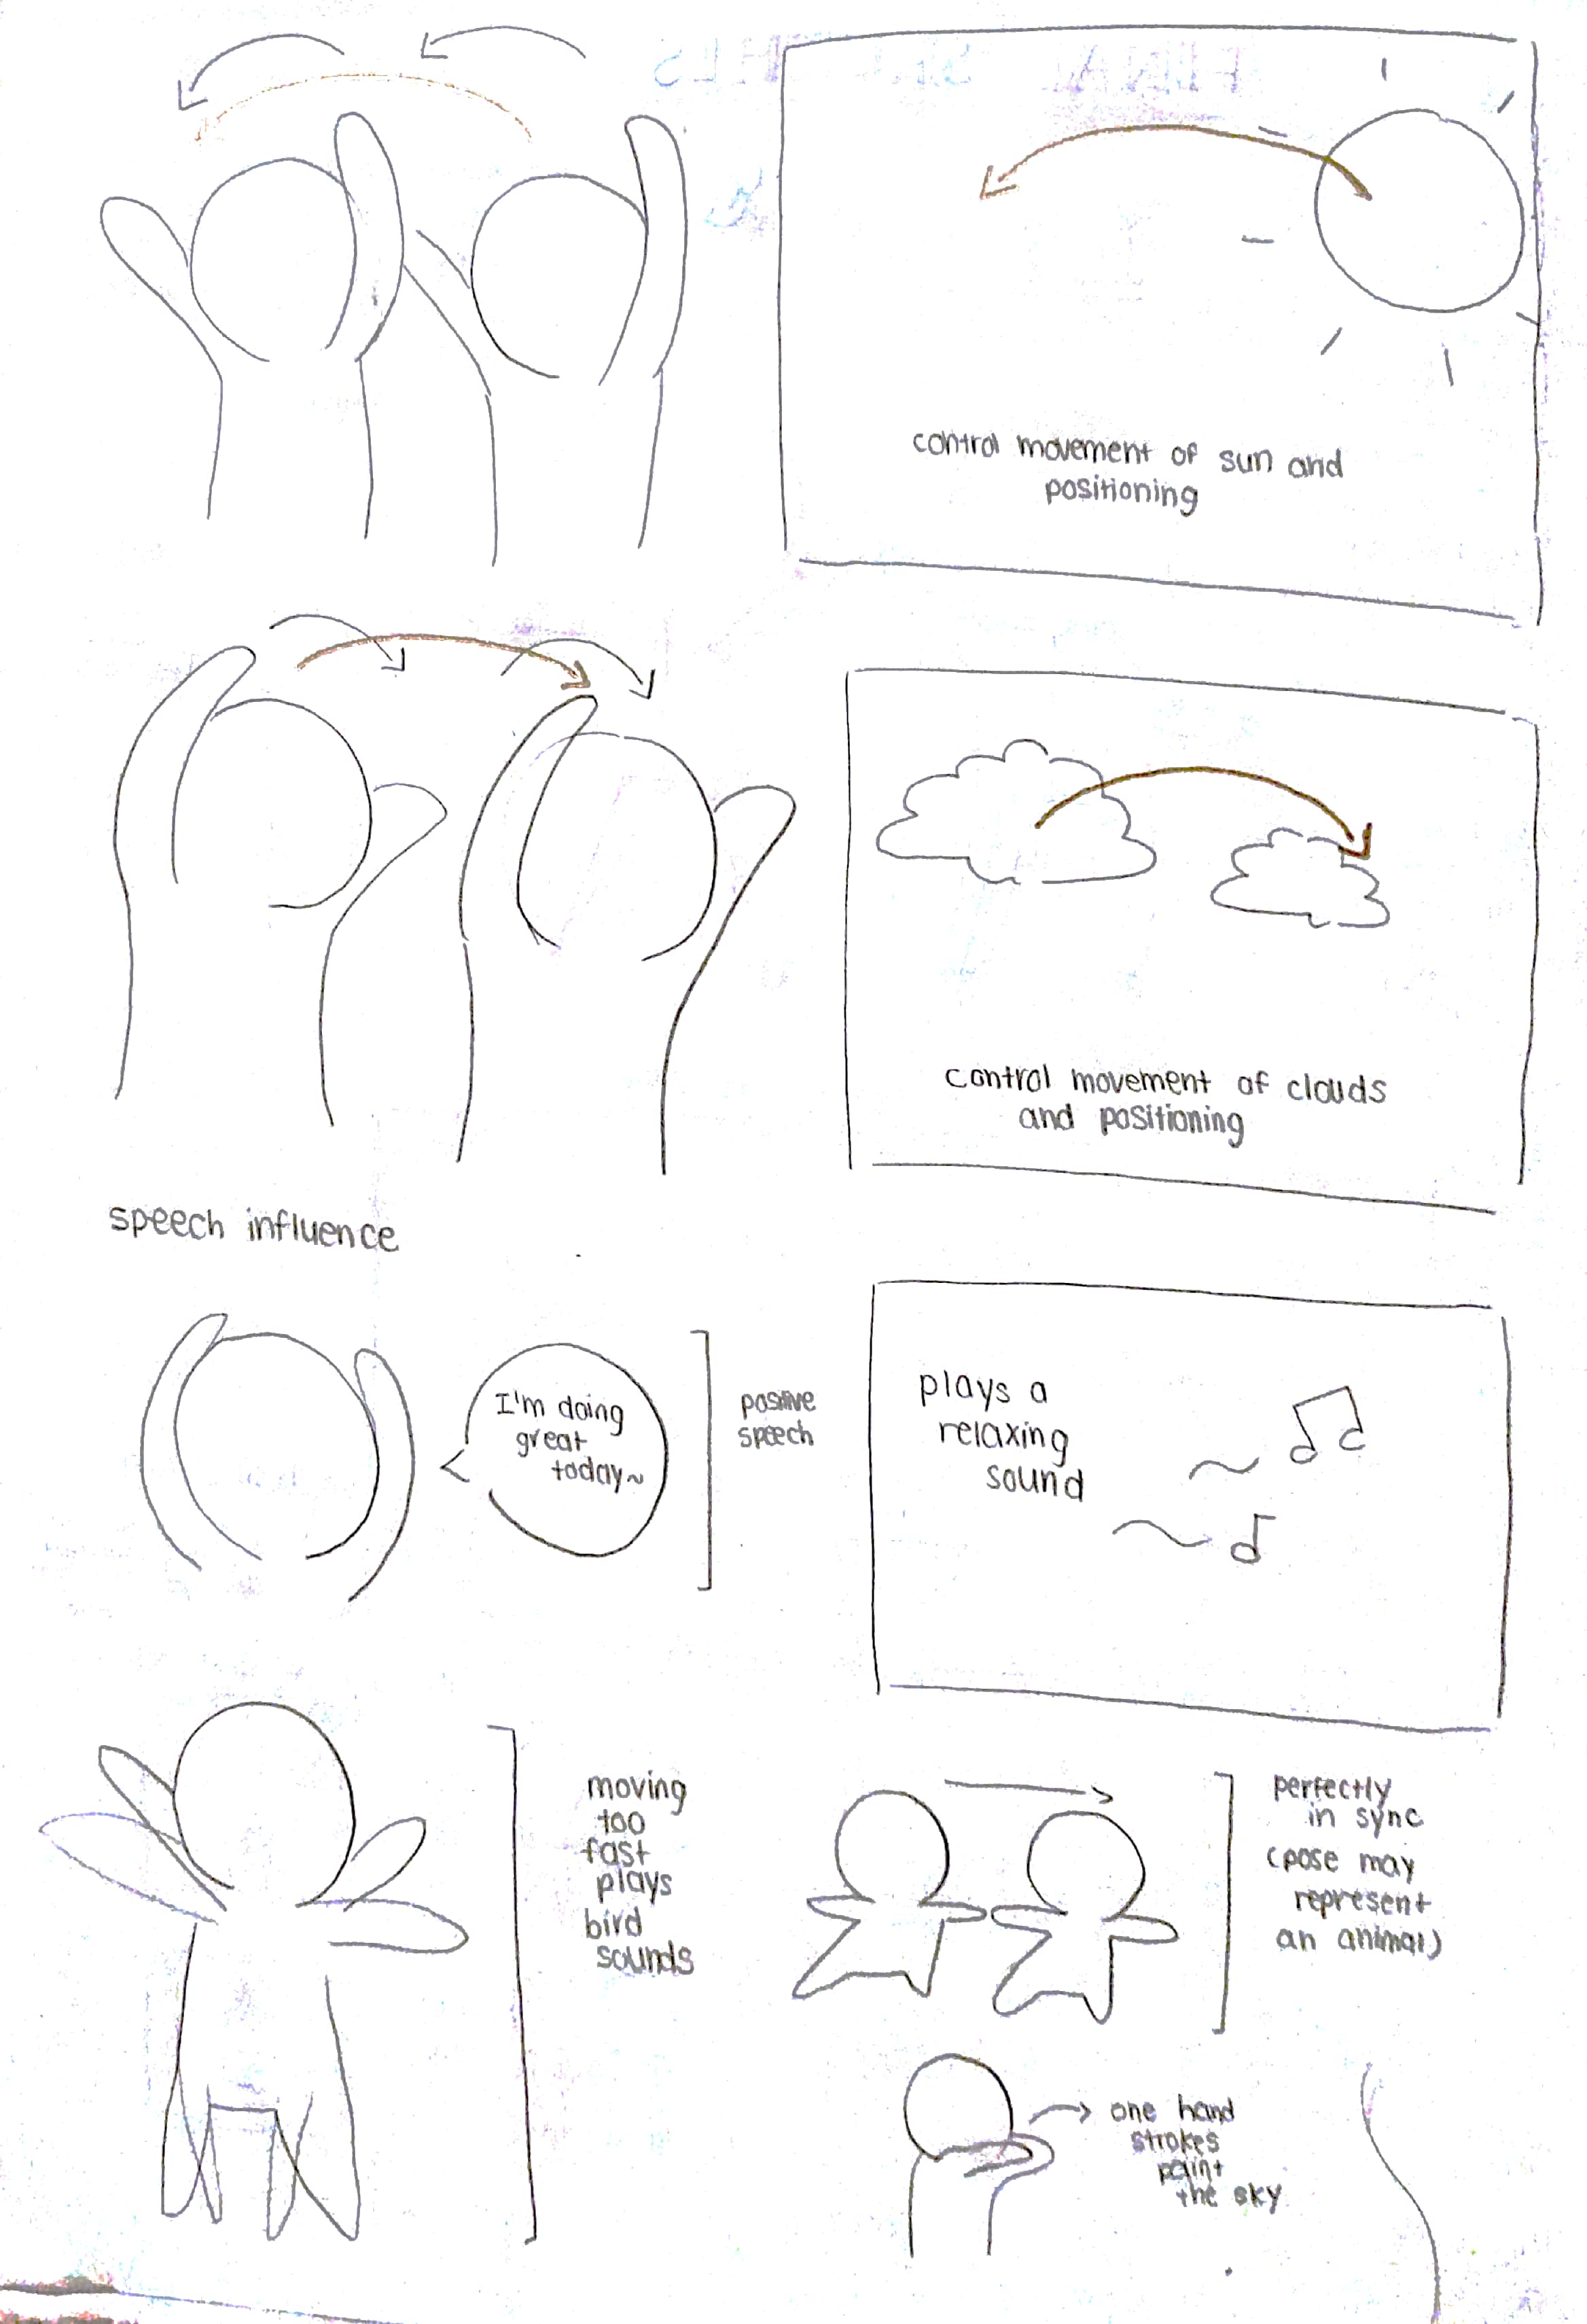 control movement of sun and
positioning
control movement of clouds
and positioning
speech influence
I'm doing
great
today~
positive
speech
plays a
relaxing
sound
moving
too
fast
plays
bird
sounds
perfectly
in sync
(pose may
represent
an animal)
one hand
strokes
paint
the sky